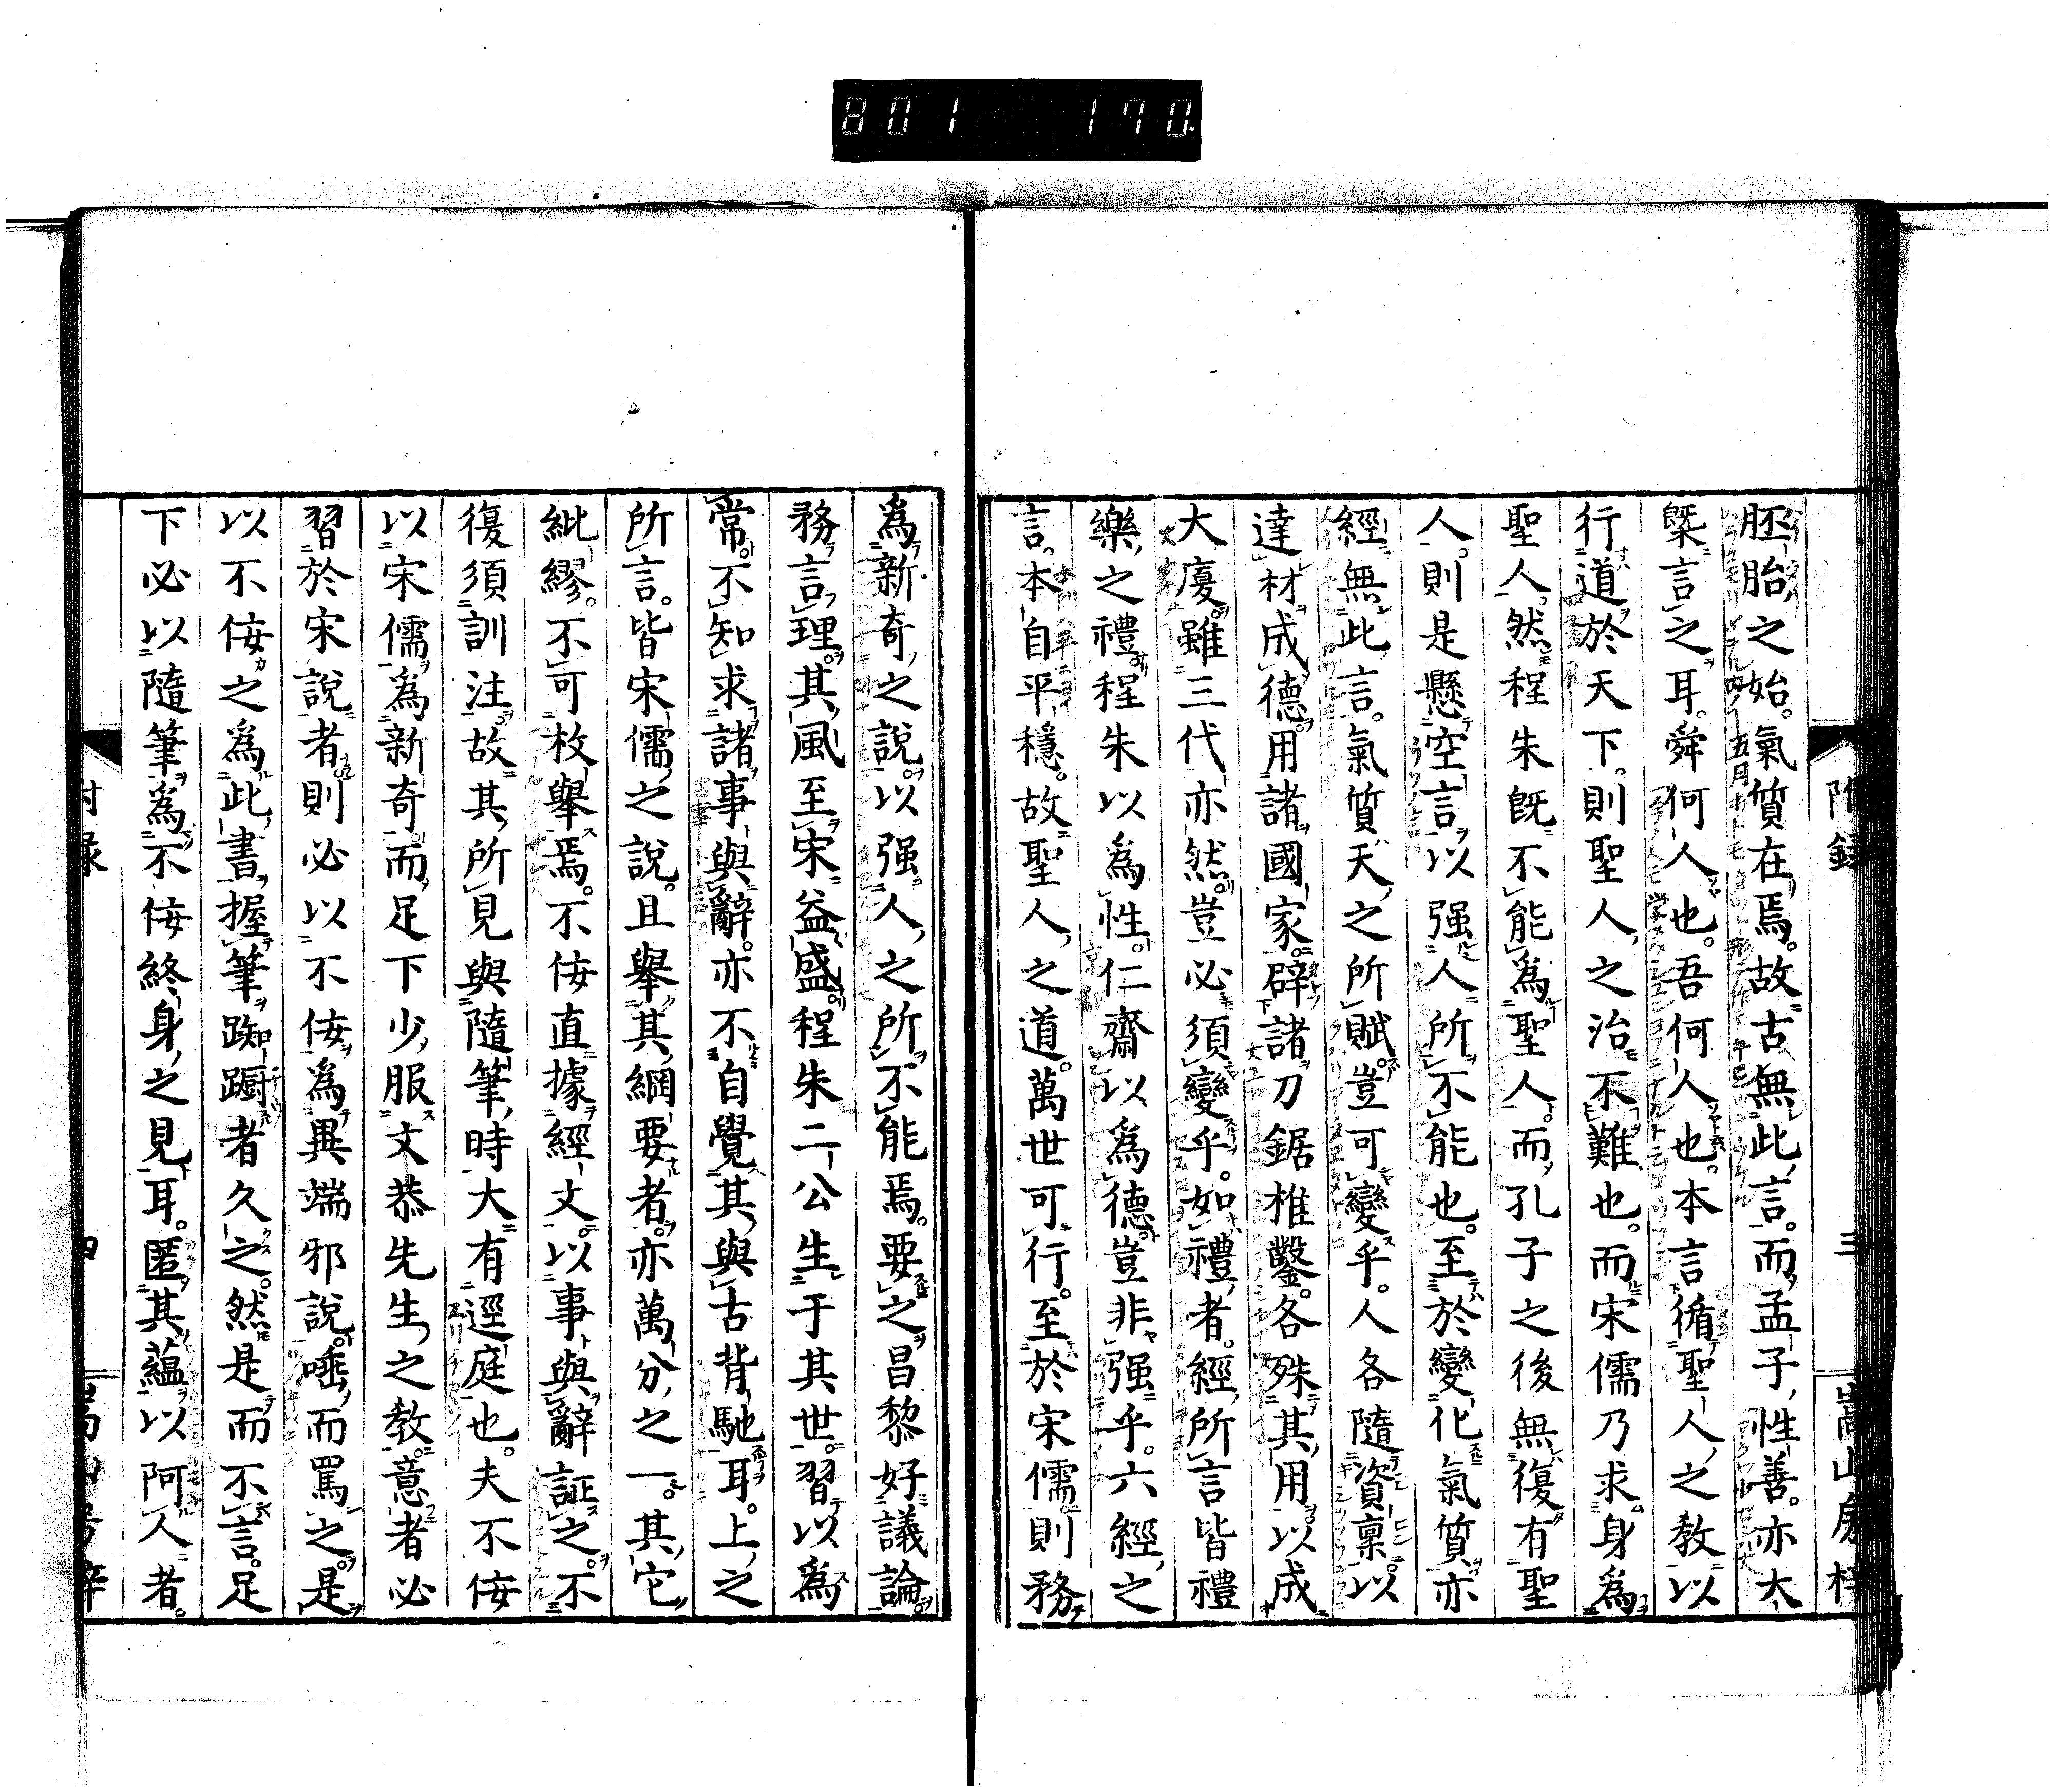 801 170.
附録 三 嵩山房梓
胚胎之始。氣質在焉。故古無此言。而孟子性善。亦大
槩言之耳。舜何人也。吾何人也。本言循聖人之教以
行道於天下。則聖人之治不難也。而宋儒乃求身爲
聖人。然程朱既不能爲聖人。而孔子之後無復有聖
人。則是懸空言以强人所不能也。至於變化氣質。亦
經無此言。氣質天之所賦。豈可變乎。人各隨資稟。以
達材成德。用諸國家。辟諸刀鋸椎鑿。各殊其用。以成
大廈。雖三代亦然。豈必須變乎。如禮者。經所言皆禮
樂之禮。程朱以爲性。仁齋以爲德。豈非强乎。六經之
言。本自平穩。故聖人之道。萬世可行。至於宋儒。則務
爲新奇之說。以强人之所不能焉。要之昌黎好議論。
務言理。其風至宋益盛。程朱二公生于其世。習以爲
常。不知求諸事與辭。亦不自覺其與古背馳耳。上之
所言。皆宋儒之說。且舉其綱要者。亦萬分之一。其它
紕繆。不可枚舉焉。不佞直據經文。以事與辭証之。不
復須訓注。故其所見與隨筆時大有逕庭也。夫不佞
以宋儒爲新奇。而足下少服文恭先生之教。意者必
習於宋說者。則必以不佞爲異端邪說。唾而罵之。是
以不佞之爲此書。握筆踟躕者久之。然是而不言。足
下必以隨筆爲不佞終身之見耳。匿其蘊以阿人者。